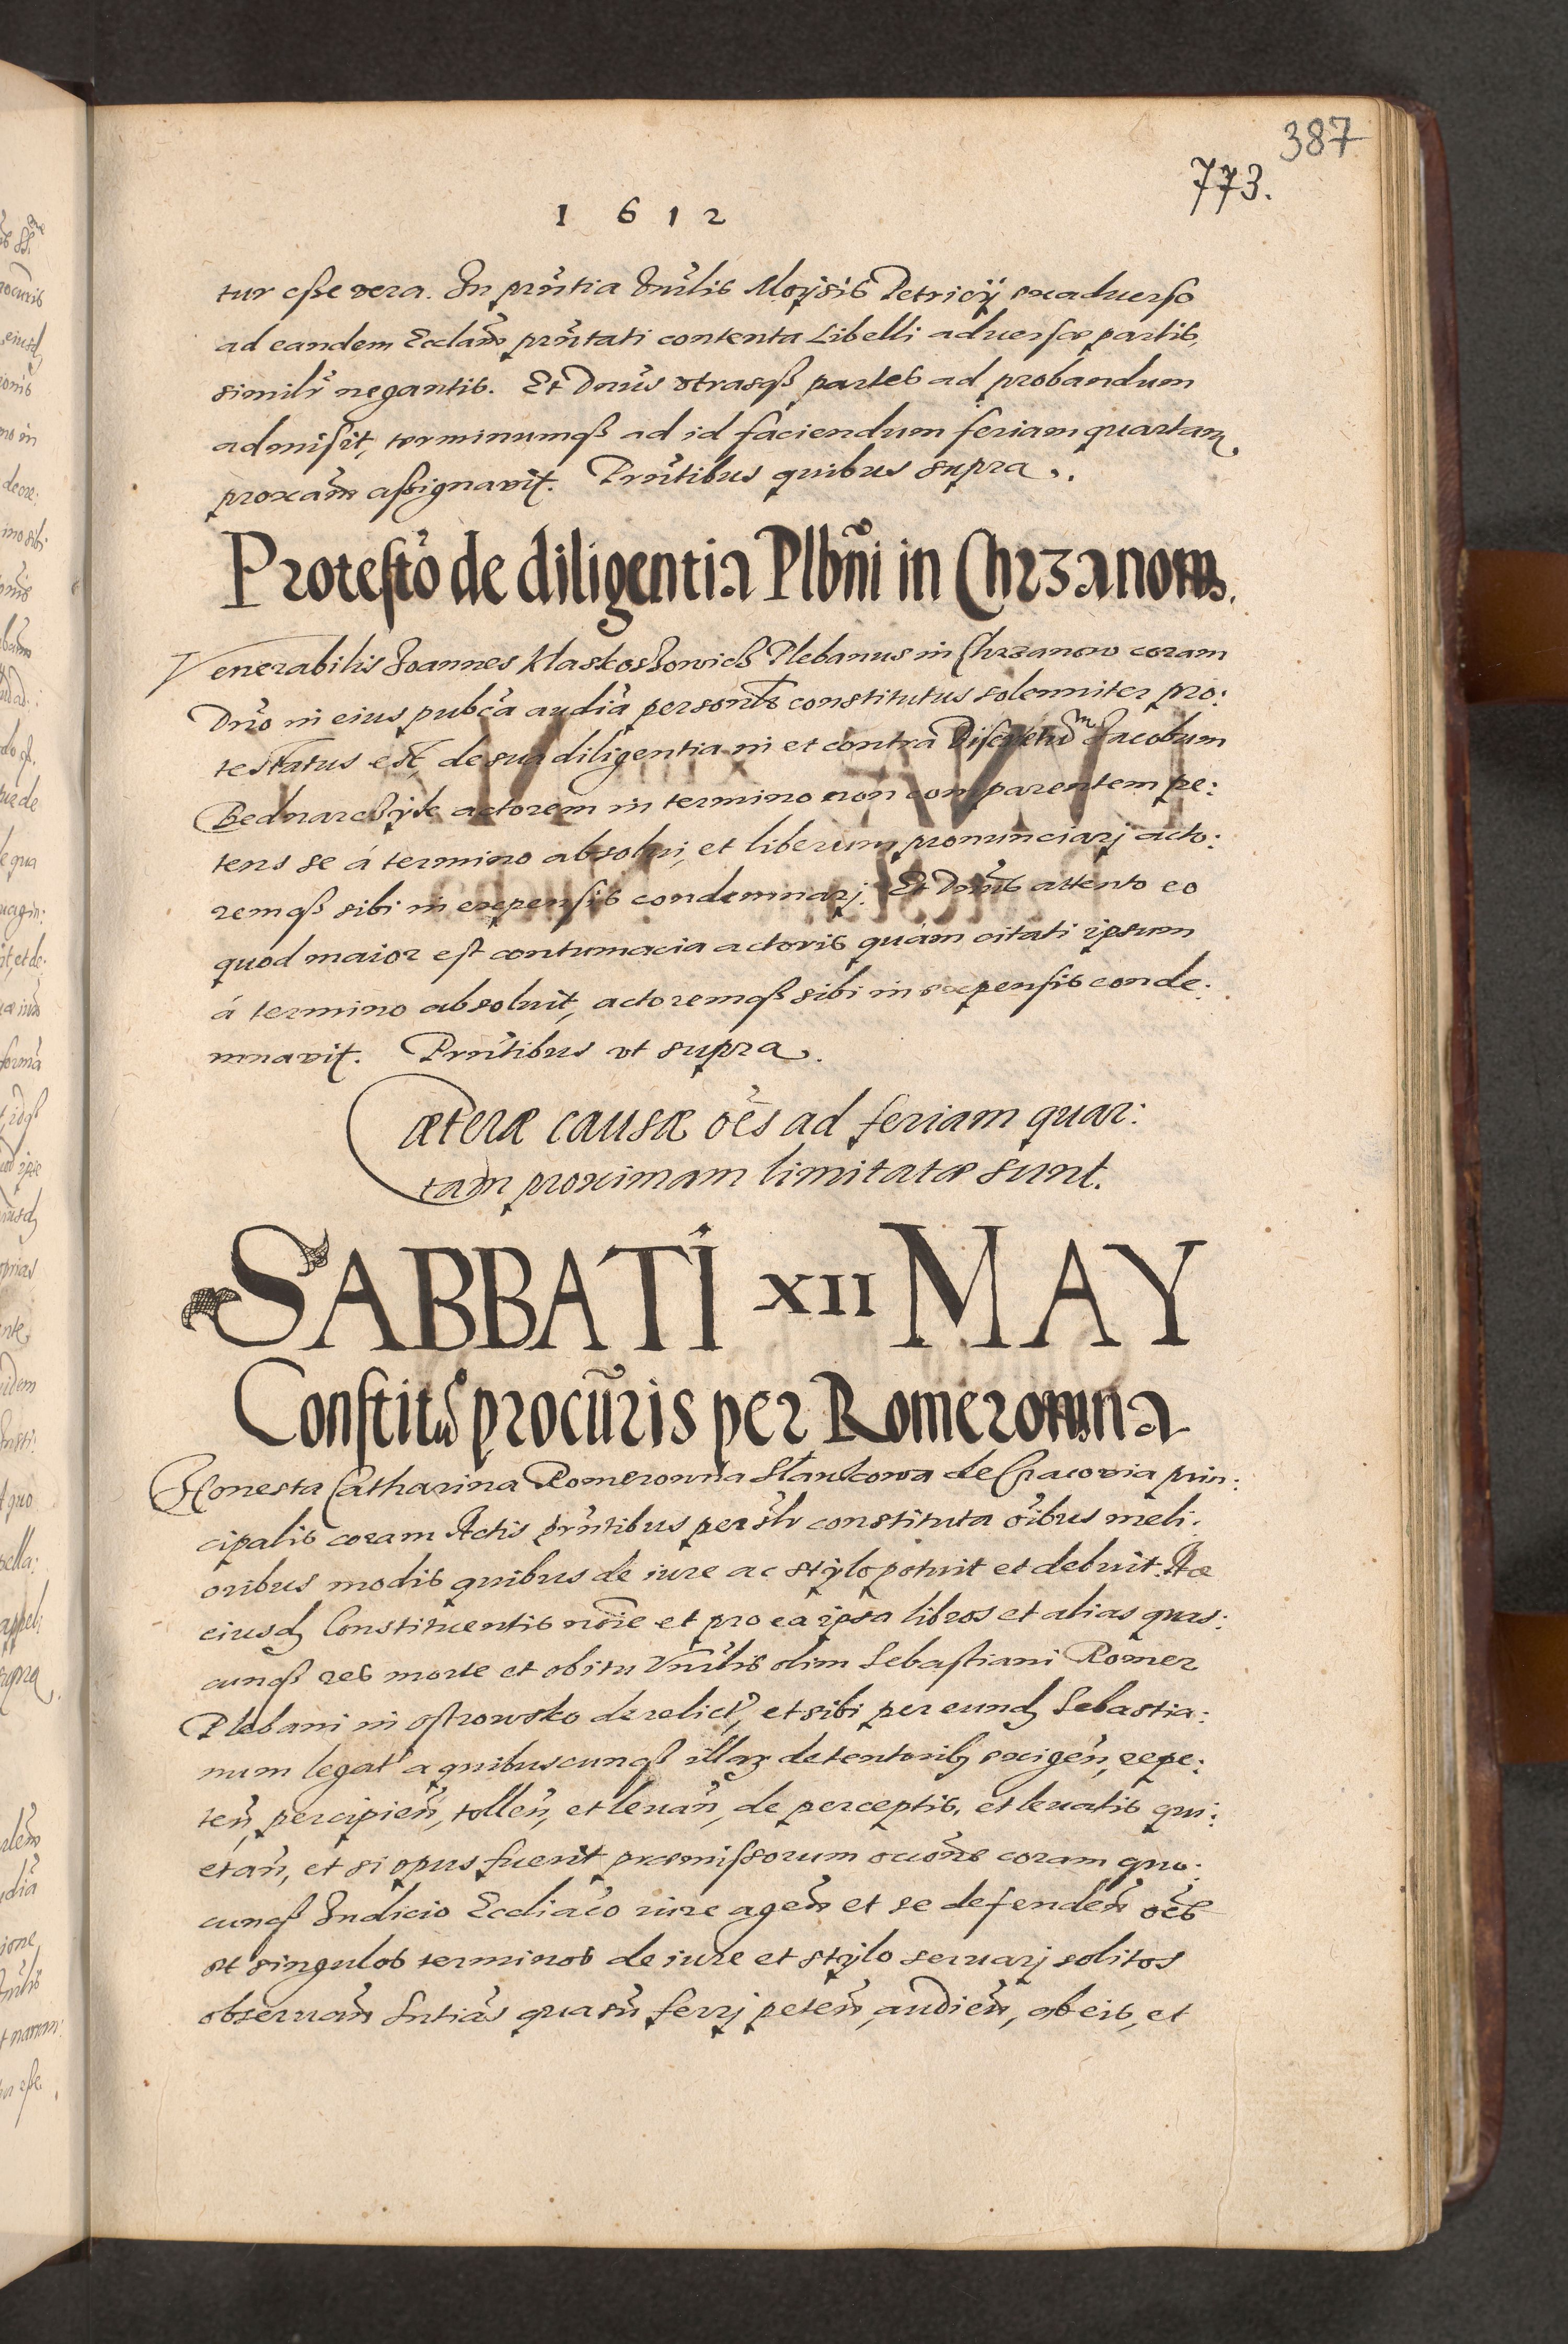 387
773.
1612
tur esse vera. In prñtia Vnrlis Moysis Petricÿ exaduerso
ad eandem Ecclam̃ prñtati contenta Libelli aduersæ partis
similr̃ negantis. Et Dnũs vtrasqß partes ad probandum
admisit, terminumqß ad id faciendum feriam quartam
proxam̃ assignavit. Prñtibus quibus supra.
Protestõ de diligentia Plbñi in Chrzanow.
Venerabilis Joannes Plebanus in Chrzanow coram
Dnõ in eius pubcã audiã persontr constitutus solenniter pro:
testatus est, de sua diligentia in et contra Discretum Jacobum
Bednarczyk actorem in termino non comparentem pe:
tens se á termino absolui, et liberum pronunciarj acto:
remqß sibi in expensis condemnarj. Et Dnũs attento eo
quod maior est contumacia actoris quám citati ipsum
á termino absoluit, actoremqß sibi in expensis conde:
mnavit. Prñtibus vt supra.
Cæteræ causæ oẽs ad feriam quar:
tam proximam limitatæ sunt.
SABBATI XII MAY
Constitũ procũris per Romerowna
Honesta Catharina Romerowna de Cracovia prin:
cipalis coram Actis prñtibus persl̃r constituta oĩbus meli:
oribus modis quibus de iure ac stylo potuit et debuit. Ac
eiusd Constituentis noĩe et pro ea ipsa libros et alias quas:
cunqß res morte et obitu Vnrlis olim Sebastiani Romer
Plebani in Ostrowsko derelict, et sibi per eund Sebastia:
num legat a quibuscunqß illarz detentorib exigeñ, repe:
teñ, percipieñ, tolleñ, et leuañ, de perceptis, et leuatis qui:
etañ, et si opus fuerit præmissorum ocioñe coram quo:
cunqß Iudicio Ecclĩaco iure ageñ et se defendeñ oẽs
et singulos terminos de iure et stylo seruarj solitos
obseruañ Sntiãs quasũ ferrj peteñ, audieñ, ab eis, et